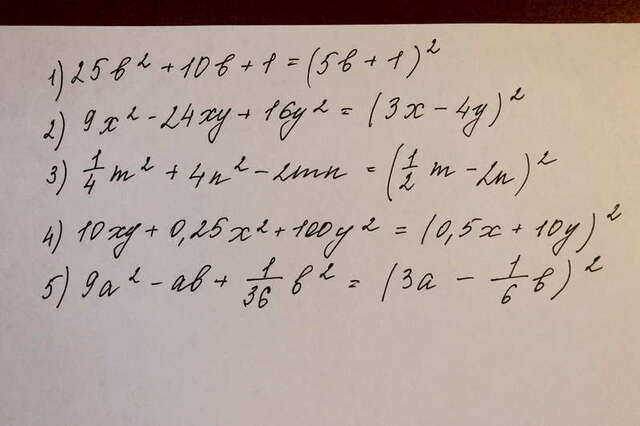 1) 25b² + 10b + 1 = (5b + 1)²
2) 9x² - 24xy + 16y² = (3x - 4y)²
3) 1/4 m² + 4n² - 2mn = (1/2 m - 2n)²
4) 10xy + 0,25x² + 100y² = (0,5x + 10y)²
5) 9a² - ab + 1/36 b² = (3a - 1/6 b)²